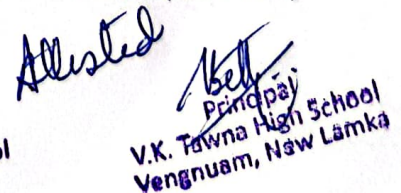 Attested
Principal
V.K. Tawna High School
Vengnuam, New Lamka
ol